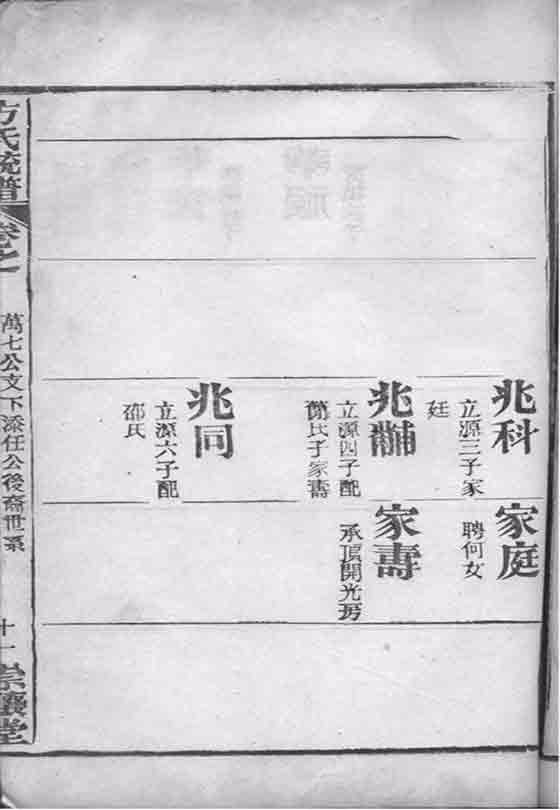 兆科
立源三子家
廷
兆黼
立源四子配
蕭氏子家壽
兆同
立源六子配
邵氏
家庭
聘何女
家壽
承頂開光房
方氏統譜
卷之
萬七公支下漆任公後裔世系
十一
崇讓堂